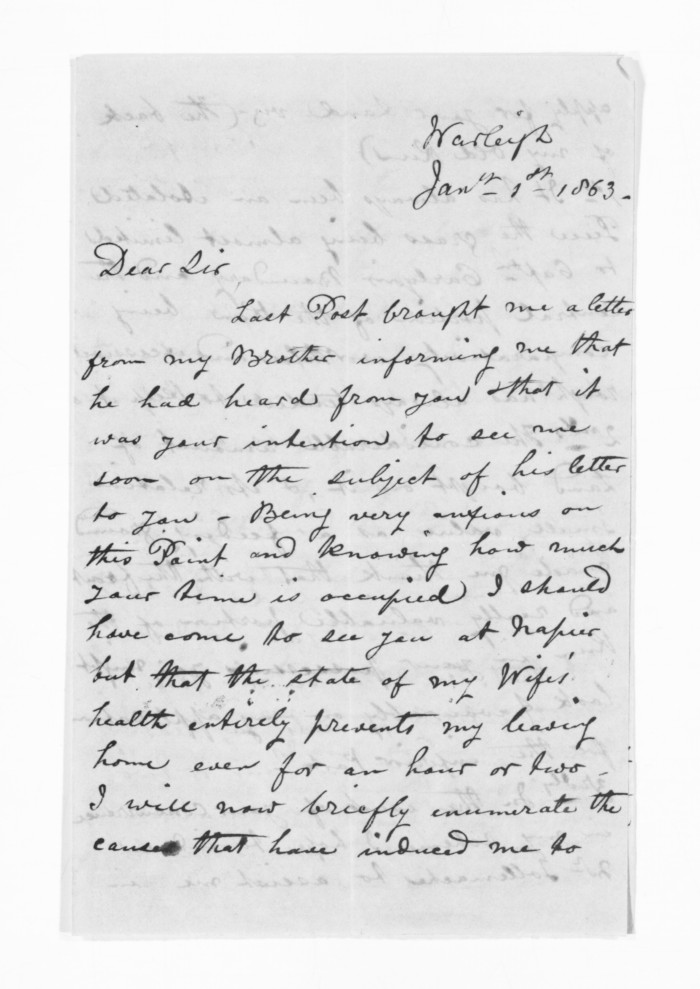 Warleigh
Jany 1st 1863.
Dear Sir
Last Post brought me a letter
from my Brother informing me that
he had heard from you & that it
was your intention to see me
soon on the subject of his letter
to you - Being very anxious on
this Point and knowing how much
your time is occupied I should
have come to see you at Napier
but that the state of my Wife's
health entirely prevents my leaving
home even for an hour or two -
I will now briefly enumerate the
causes that have induced me to